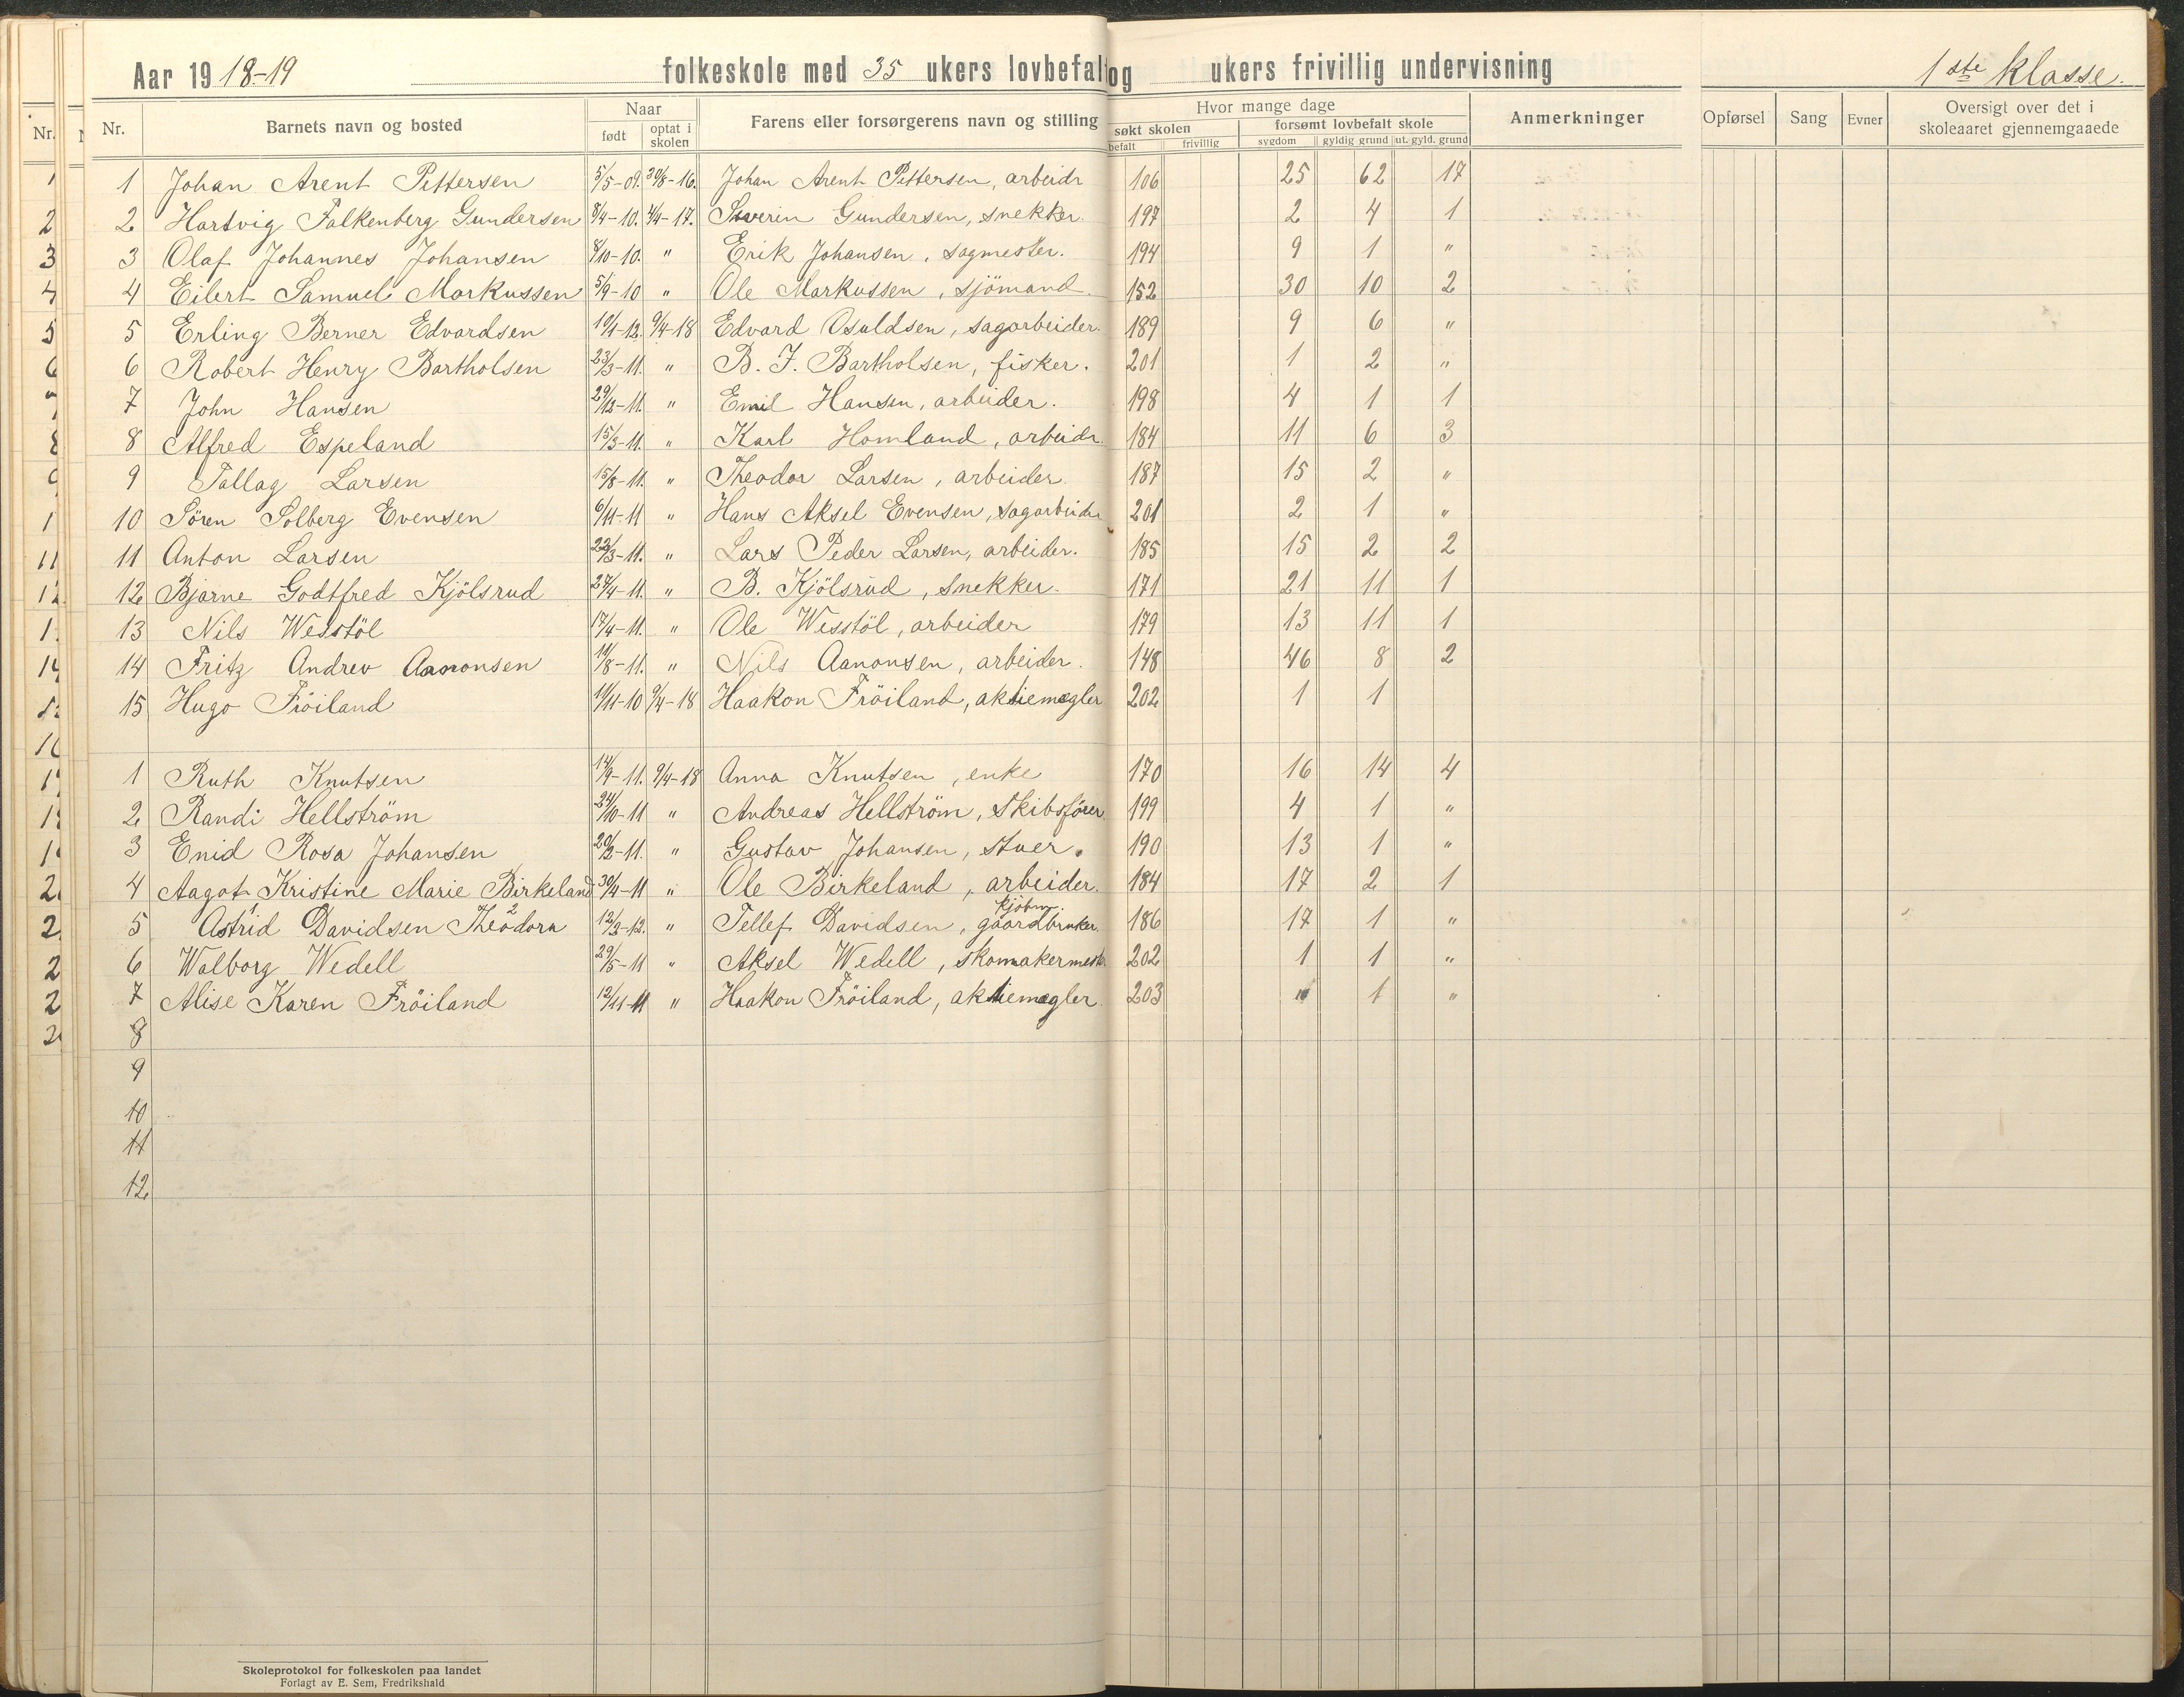 Aar 1918-19 folkeskole med 35 ukers lovbefal og ukers frivillig undervisning 1ste klasse.
Nr. Barnets navn og bosted Naar født optat i skolen Farens eller forsørgerens navn og stilling Hvor mange dage søkt skolen befalt frivillig forsømt lovbefalt skole sygdom gyldig grund ut. gyld. grund Anmerkninger Opførsel Sang Evner Oversigt over det i skoleaaret gjennemgaaede
1 Johan Arent Pettersen 5/5-09. 30/8-16. Johan Arent Pettersen, arbeidr 106 25 62 17
2 Hartvig Falkenberg Gundersen 8/4-10. 4/4-17. Severin Gundersen, snekker. 197 2 4 1
3 Olaf Johannes Johansen 8/10-10. " Erik Johansen, sagmester. 194 9 1 "
4 Eilert Samuel Markussen 5/9-10 " Ole Markussen, sjömand. 152 30 10 2
5 Erling Berner Edvardsen 19/1-12. 9/4-18 Edvard Osuldsen, sagarbeider. 189 9 6 "
6 Robert Henry Bartholsen 23/3-11. " B. J. Bartholsen, fisker. 201 1 2 "
7 John Hansen 29/12-11. " Emil Hansen, arbeider. 198 4 1 1
8 Alfred Espeland 15/3-11. " Karl Homland, arbeidr. 184 11 6 3
9 Tallag Larsen 15/8-11. " Theodor Larsen, arbeider. 187 15 2 "
10 Sören Solberg Evensen 6/11-11 " Hans Aksel Evensen, sagarbeider 201 2 1 "
11 Anton Larsen 22/3-11. " Lars Peder Larsen, arbeider. 185 15 2 2
12 Bjarne Godtfred Kjölsrud 27/4-11. " B. Kjölsrud, snekker. 171 21 11 1
13 Nils Wesstöl 17/4-11. " Ole Wesstöl, arbeider 179 13 11 1
14 Fritz Andrev Aanonsen 19/8-11. " Nils Aanonsen, arbeider. 148 46 8 2
15 Hugo Fröiland 11/11-10 9/4-18 Haakon Fröiland, aktiemægler 202 1 1
1 Ruth Knutsen 14/9-11. 9/4-18 Anna Knutsen, enke 170 16 14 4
2 Randi Hellström 24/10-11 " Andreas Hellström, Skibsförer. 199 4 1 "
3 Enid Rosa Johansen 20/2-11. " Gustav Johansen, Stuer. 190 13 1 "
4 Aagot Kristine Marie Birkeland 30/4-11 " Ole Birkeland, arbeider. 184 17 2 1
kjöbm.
5 Astrid Davidsen Theodora 12/3-12. " Tellef Davidsen, gaardbruker. 186 17 1 "
6 Walborg Wedell 29/5-11 " Aksel Wedell, skomakermester 202 1 1 "
7 Alise Karen Fröiland 12/11-11 " Haakon Fröiland, aktiemægler. 203 " 1 "
8
9
10
11
12
Skoleprotokol for folkeskolen paa landet
Forlagt av E. Sem, Fredrikshald